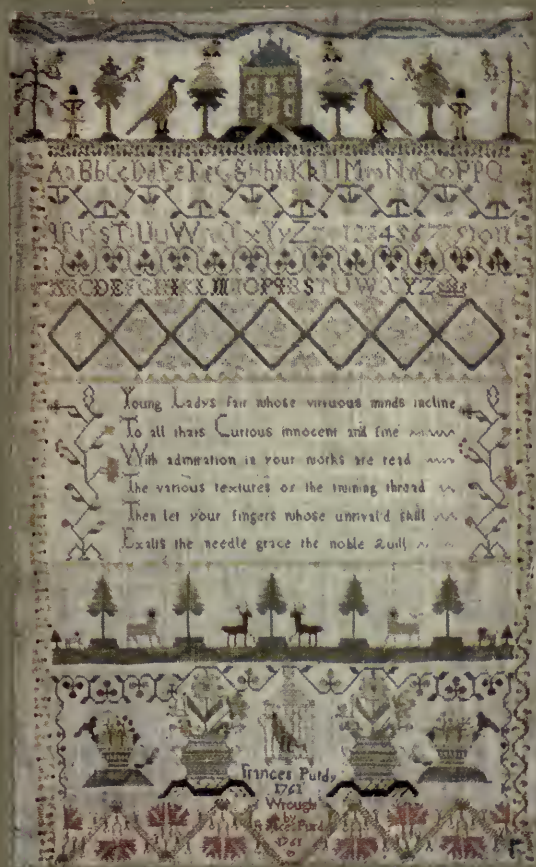 AaBbCcDdEeFfGgHhIiKkLlMmNnOoPpQ
qRrSsTtUuWwXxYyZz 1234567891011
ABCDEFGHIKLMNOPQRSTUWXYZ
Young Ladys fair whose virtuous minds incline
To all thats Curious innocent and fine
With admiration in your works are read
The various textures of the twining thread
Then let your fingers whose unrival'd skill
Exalts the needle grace the noble Quill
Frances Purdy
1761
Wrought
by
Frances Purdy
1761